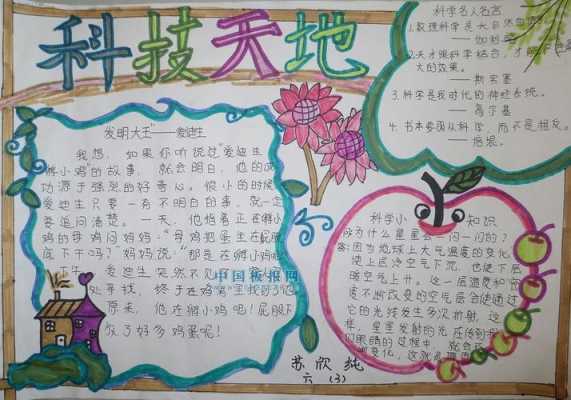 科技天地
发明大王"——爱迪生
我想，如果你听说过"爱迪生
孵小鸡"的故事，就会明白，他的成
功源于强烈的好奇心。很小的时候
爱迪生只要一有不明白的事，就一定
要追问清楚。一天，他指着正在孵小
鸡的母鸡问妈妈："母鸡把蛋坐在屁股
底下干吗？"妈妈说："那是在孵小鸡呢
爱迪生突然不见
处寻找，终于在鸡窝里找到了他
原来，他在孵小鸡呢！屁股下
放了好多鸡蛋呢！
中国板报网
科学名人名言
1.数理科学是大自然
——伽利略
2.天才跟科学结合，才
大的效果。
——斯宾塞
3.科学是我时代的神经系统。
——高尔基
4.书本要面从科学，而不是相反。
——培根。
科学小知识
为什么星星会一闪一闪的？
答：因为地球上大气温度的变化，
使上层冷空气下沉，也使下层
暖空气上升。这一层温度和密
度不断改变的空气层会使通过
它的光线发生多次折射，这
样，星星发射的光在传到
们眼睛的过程中，就会
变化，这就
苏欣纯
六（3）